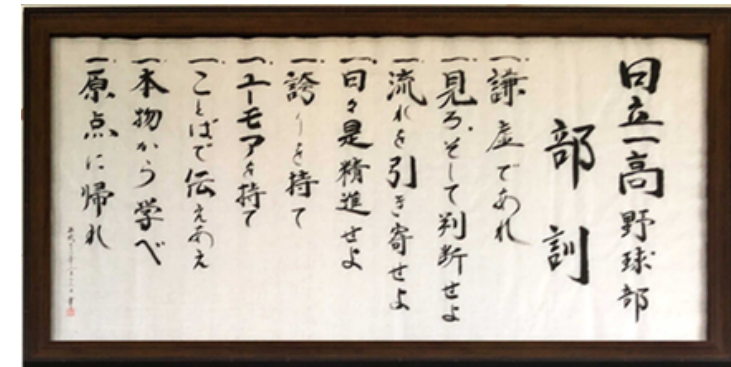 日立一高野球部
部訓
一、謙虚であれ
一、見ろ、そして判断せよ
一、流れを引き寄せよ
一、日々是精進せよ
一、誇りを持て
一、ユーモアを持て
一、ことばで伝えあえ
一、本物から学べ
一、原点に帰れ